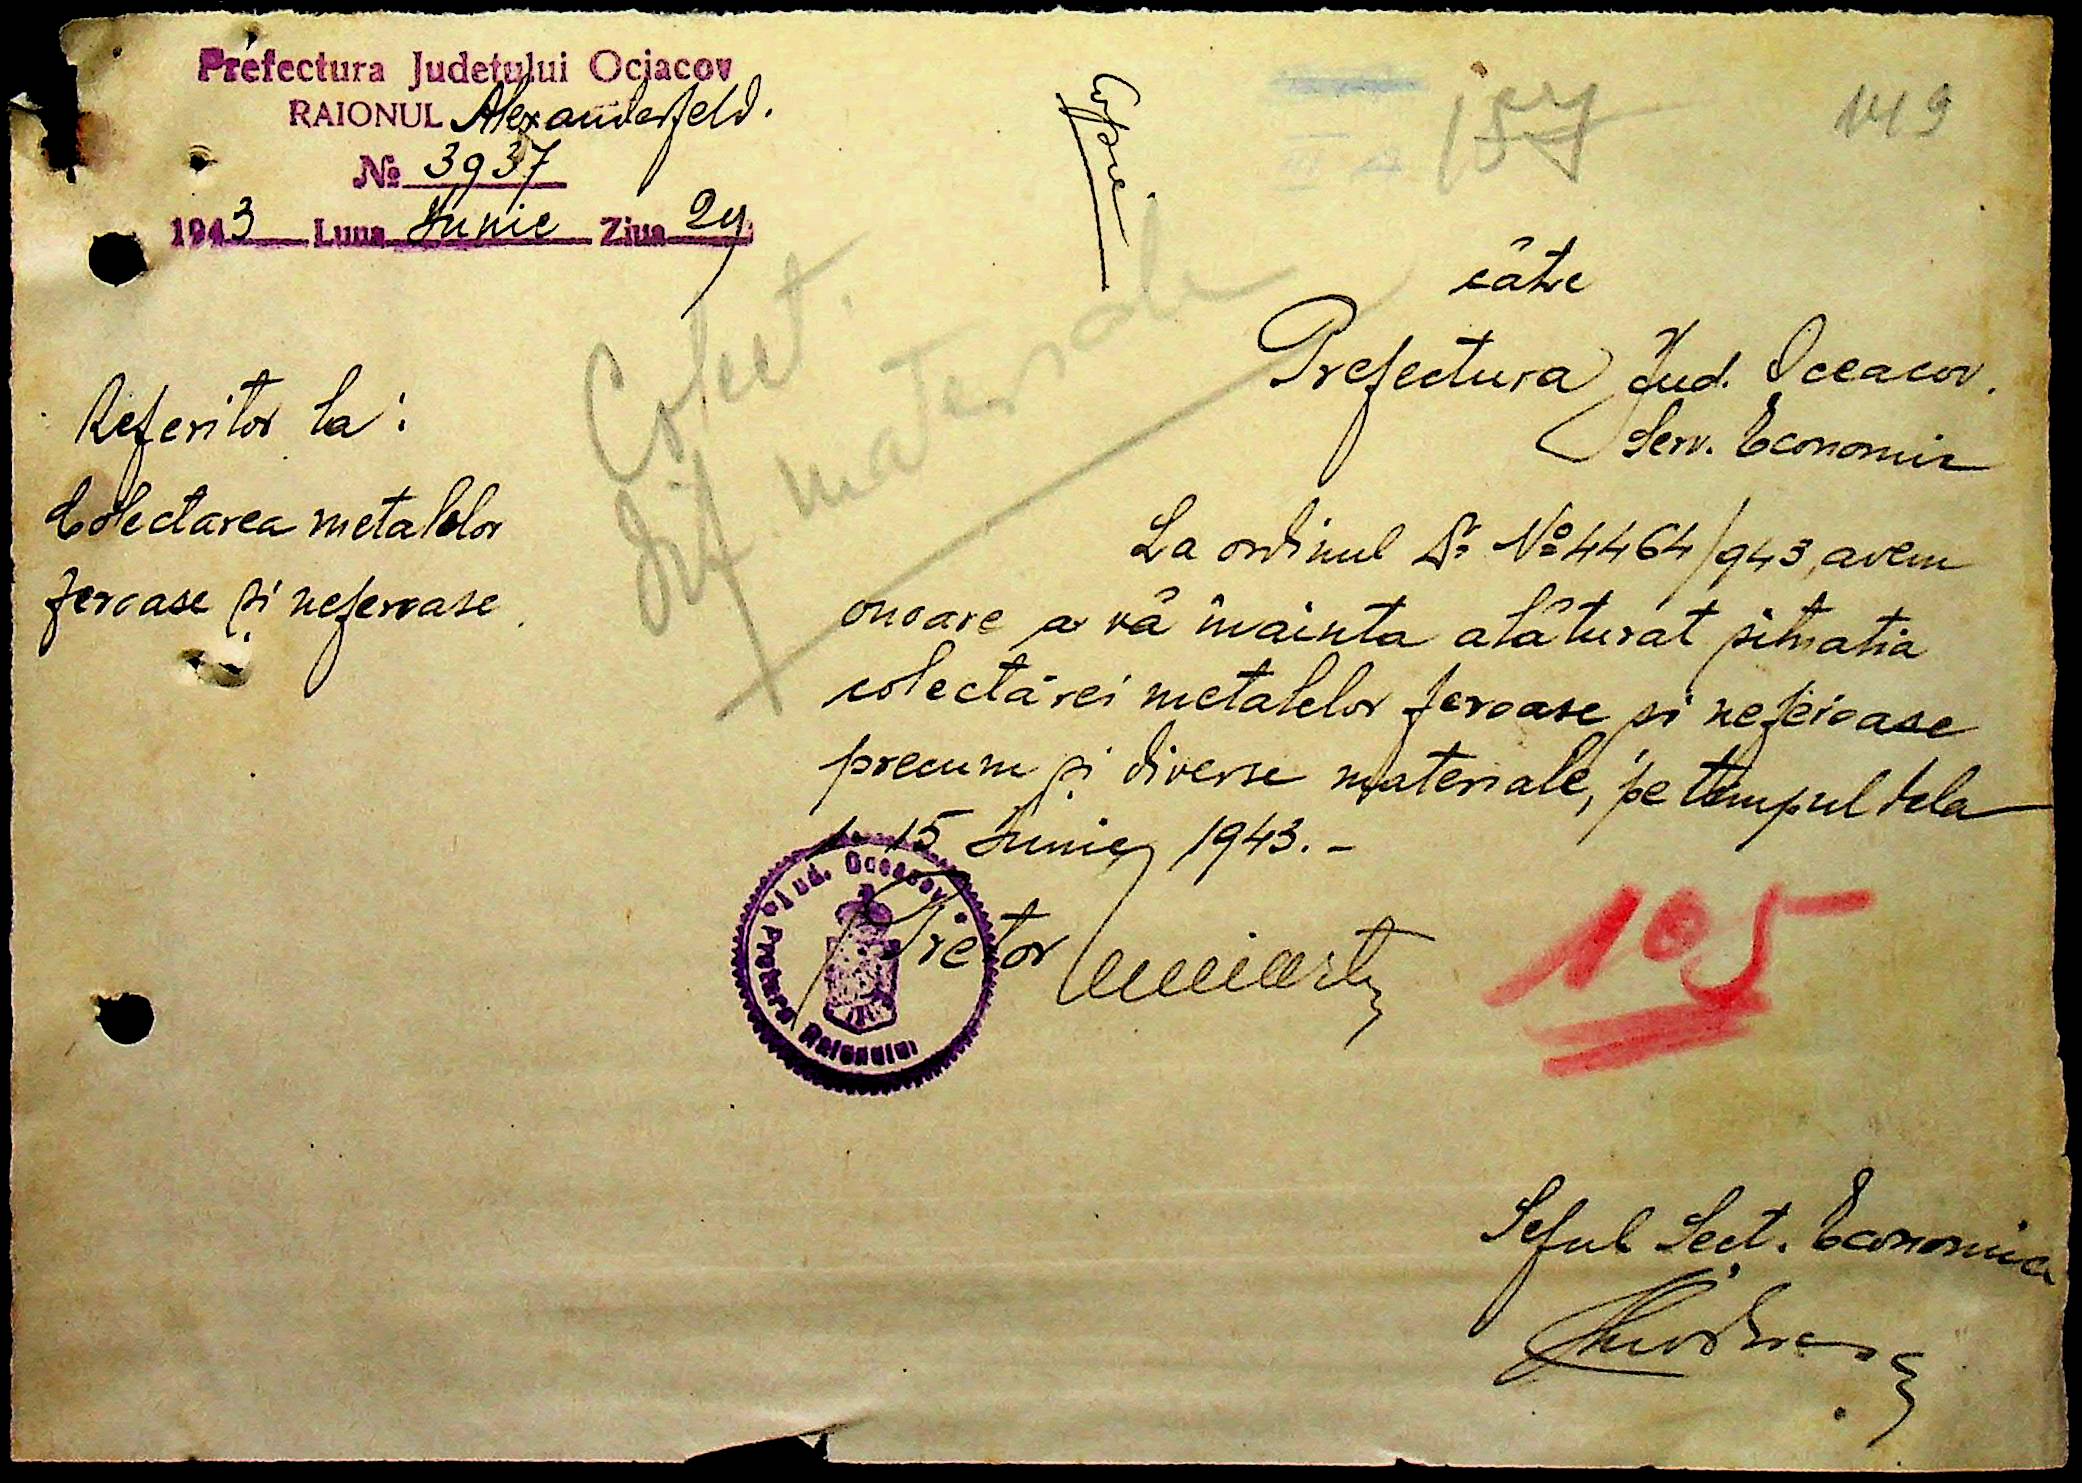 Prefectura Judetului Ociacov
RAIONUL Alexanderfeld.
№ 3937
1943 Luna Iunie Ziua 24
Copie
157
149
Colect.
dif. materiale
cãtre
Prefectura Jud. Oceacov.
Serv. Economic
Referitor la:
Colectarea metalelor
feroase și neferoase.
La ordinul Dv. № 4464/943, avem
onoare a vã înainta alãturat situatia
colectãrei metalelor feroase și neferoase
precum și diverse materiale, pe timpul dela
1-15 Iunie 1943.-
Pretor
Jud. Oceacov
Pretura Raionului
105
Seful Sect. Economic